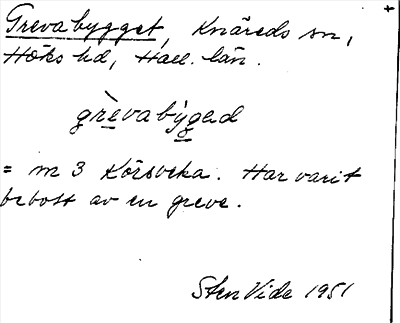 Grevabygget, Knäreds sn,
Höks hd, Hall. län.
grèvabỳgəd
= m 3 Körsveka. Har varit
bebott av en greve.
Sten Vide 1951